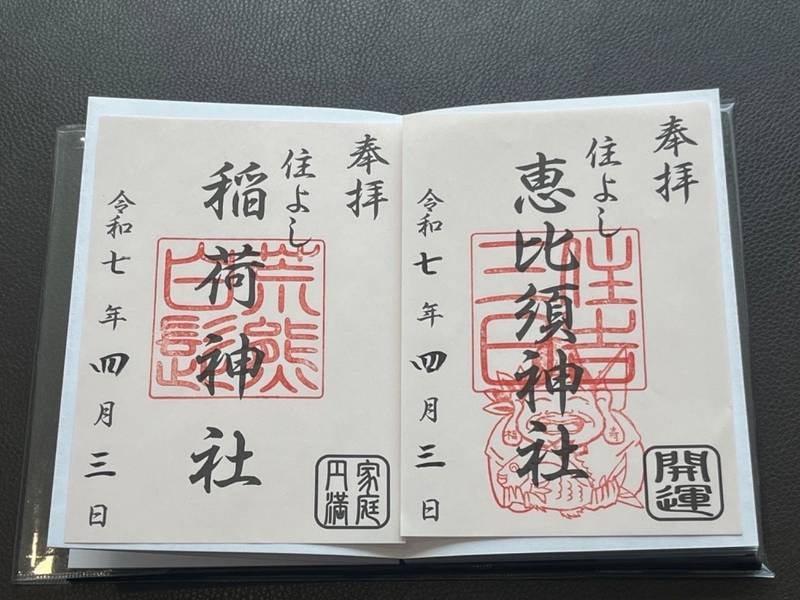 奉拝
住よし
恵比須神社
住吉
福
寿
令和七年四月三日
開運
奉拝
住よし
稲荷神社
荒熊
白髭
令和七年四月三日
家庭
円満